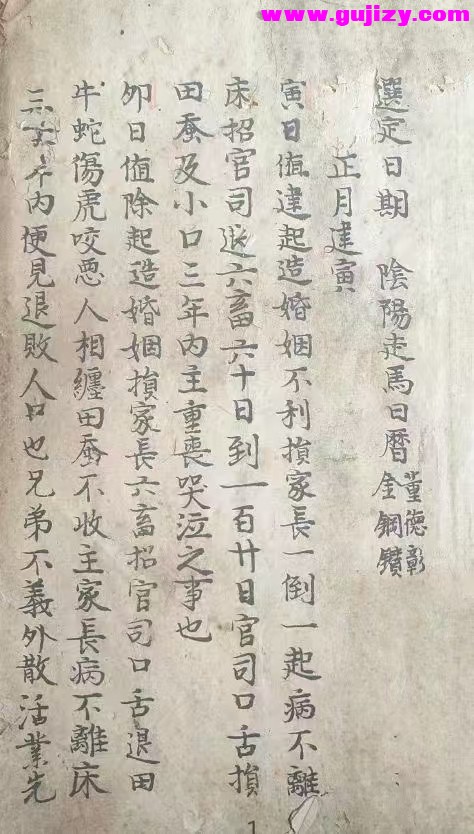 www.gujizy.com
選定日期 陰陽走馬日曆 董德彰 金鋼鑽
正月建寅
寅日值建起造婚姻不利損家長一倒一起病不離
床招官司退六畜六十日到一百廿日官司口舌損
田蚕及小口三年内主重喪哭泣之事也
卯日值除起造婚姻損家長六畜招官司口舌退田
牛蛇傷虎咬惡人相纏田蚕不收主家長病不離床
三六年内便見退敗人口也兄弟不義外散活業先
1